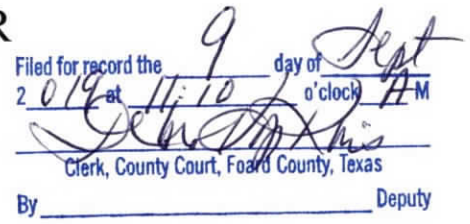 R
Filed for record the 9 day of Sept
2 019 at 11:10 o'clock A M
Clerk, County Court, Foard County, Texas
By Deputy